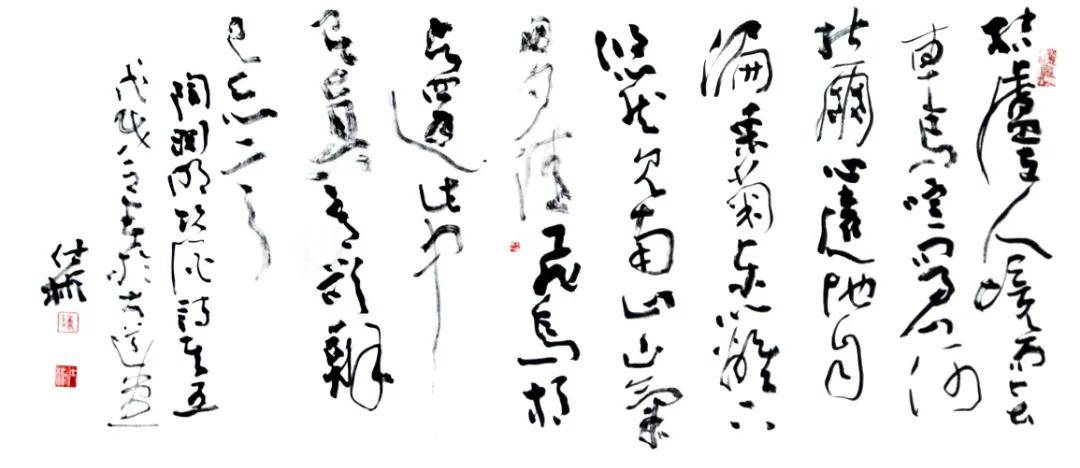 結廬在人境而無
車馬喧問君何
能爾心遠地自
偏采菊東籬下
悠然見南山山氣
日夕佳飛鳥相
與還此中
有真意欲辨
已忘言
陶淵明飲酒詩其五
戊戌 於古道